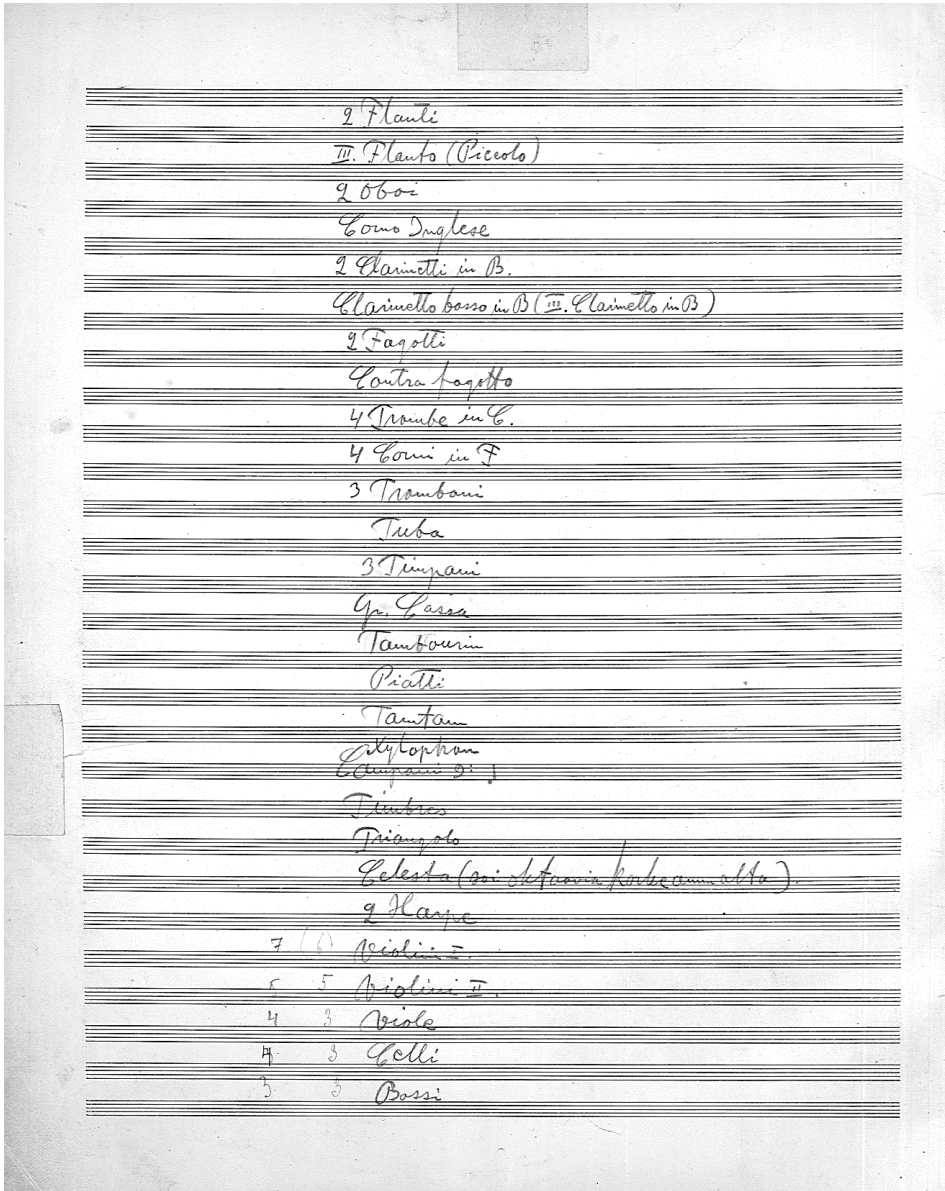 2 Flauti
III. Flauto (Piccolo)
2 Oboi
Corno Inglese
2 Clarinetti in B.
Clarinetto basso in B (III. Clarinetto in B)
2 Fagotti
Contra fagotto
4 Trombe in C.
4 Corni in F
3 Tromboni
Tuba
3 Timpani
Gr. Cassa
Tambourin
Piatti
Tamtam
Xylophon
Campani
Timbres
Triangolo
Celesta (soi oktaavia korkeammalta).
2 Harpe
7 (6) Violini I.
5 5 Violini II.
4 3 Viole
4 3 Celli
3 3 Bassi